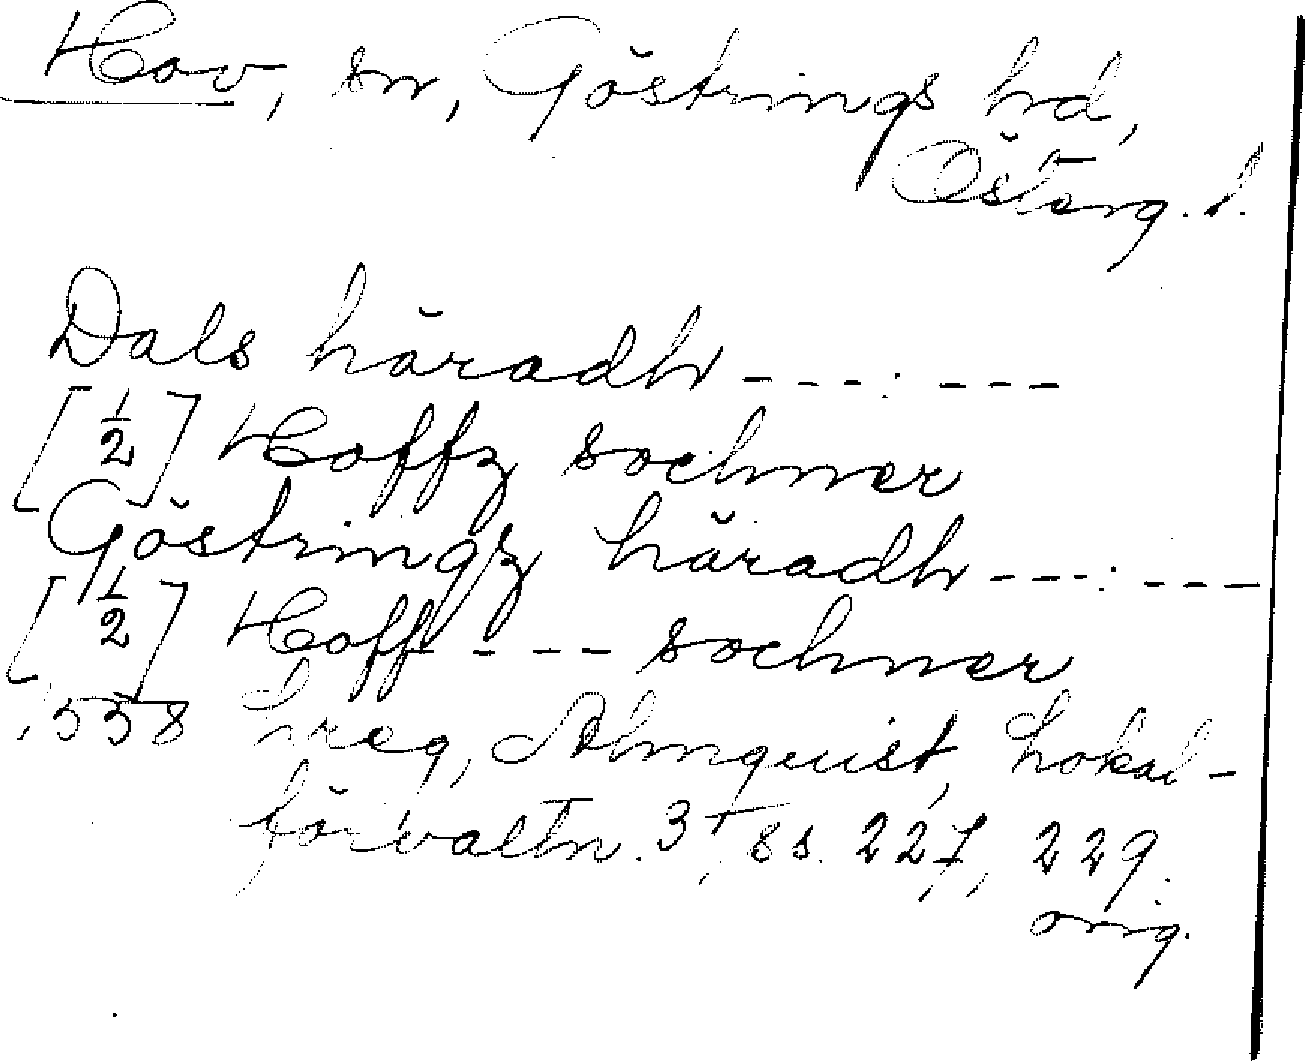 Hov, sn, Göstrings hd,
Österg. l.
Dals häradh - - - . - - -
[½] Hoffz sochner
Göstringz häradh - - - . - - -
[½] Hoff - - - sochner
1558 hreg, Almquist, Lokal-
förvaltn. 3, ss. 227, 229.
orig.